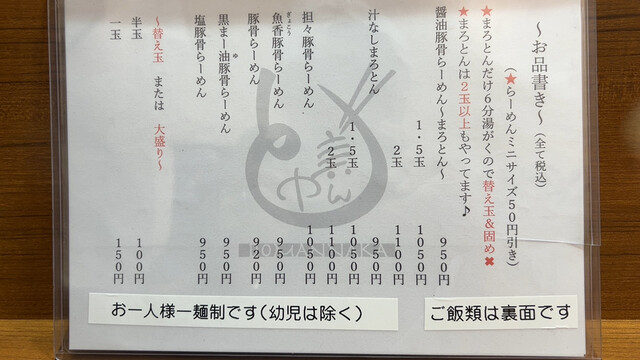 ～お品書き～（全て税込）
（★らーめんミニサイズ５０円引き）
★まろとんだけ６分湯がくので替え玉＆固め✖
★まろとんは２玉以上もやってます♪
醤油豚骨らーめん～まろとん～ ９５０円
１・５玉 １０５０円
２玉 １１００円
汁なしまろとん ９５０円
１・５玉 １０５０円
２玉 １１００円
担々豚骨らーめん １０５０円
ぎょこう
魚香豚骨らーめん ９５０円
豚骨らーめん ９２０円
ゅ
黒まー油豚骨らーめん ９５０円
塩豚骨らーめん ９５０円
～替え玉 または 大盛り～
半玉 １００円
一玉 １５０円
お一人様一麺制です(幼児は除く)
ご飯類は裏面です